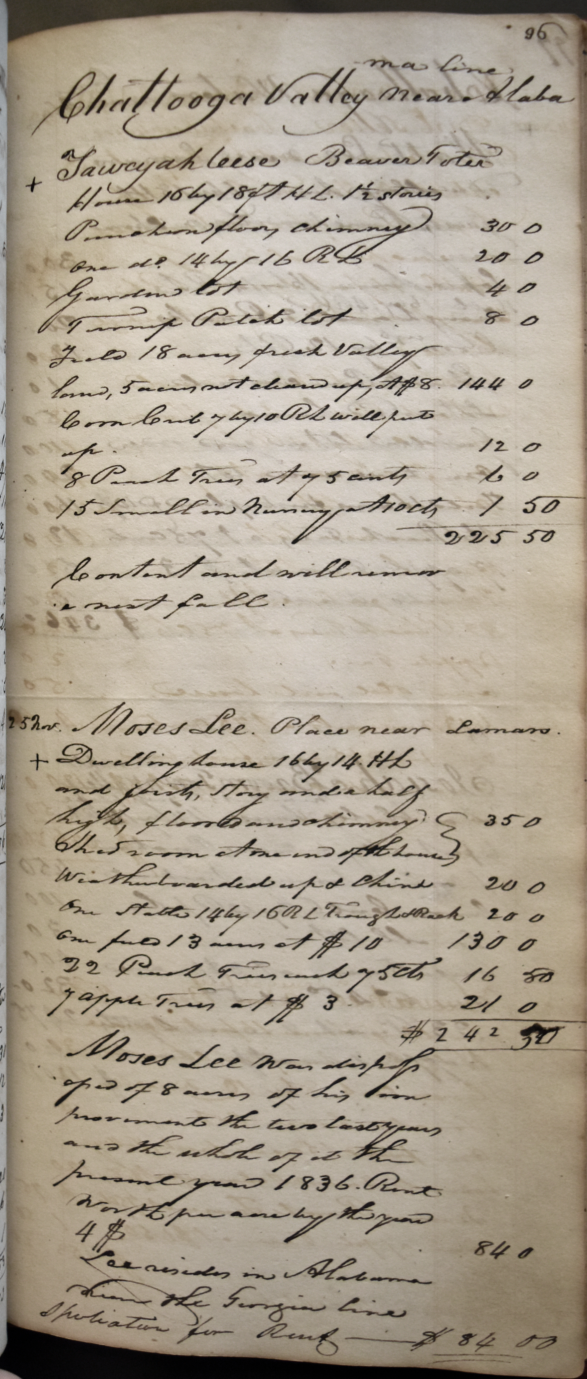 96
ma line
Chattooga Valley neare Alaba
Tawcyahleese Beaver Toter
+ House 16 by 18 ft H L. 1½ stories
Puncheon floors chimney 30 0
one do. 14 by 16 R L 20 0
Garden lot 4 0
Turnip Patch lot 8 0
Field 18 acres fresh Valley
land, 5 acres not cleand up, at $8. 144 0
Corn Crib 7 by 10 R L will put
up. 12 0
8 Peach Trees at 75 cents 6 0
15 Small in Nursery at 10 cts 1 50
225 50
Content and will remov
e next fall.
25 Nov. Moses Lee. Place near Lamars.
+ Dwelling house 16 by 14 H L
and joists, story and a half
high, floored and chimney } 35 0
Shed room at one end of the house
Weatherboarded up & Chind 20 0
One Stable 14 by 16 R L Trough & Rack 20 0
one field 13 acres at $ 10 130 0
22 Peach Trees each 75 cts 16 50
7 apple Trees at $ 3 21 0
$ 242 50
Moses Lee was disposs
essed of 8 acres of his im
provement the two last years
and the whole of it the
present year 1836. Rent
worth per acre by the year
4 $ 84 0
Lee resides in Alabama
near the Georgia line
Spoliation for Rent — $ 84 00